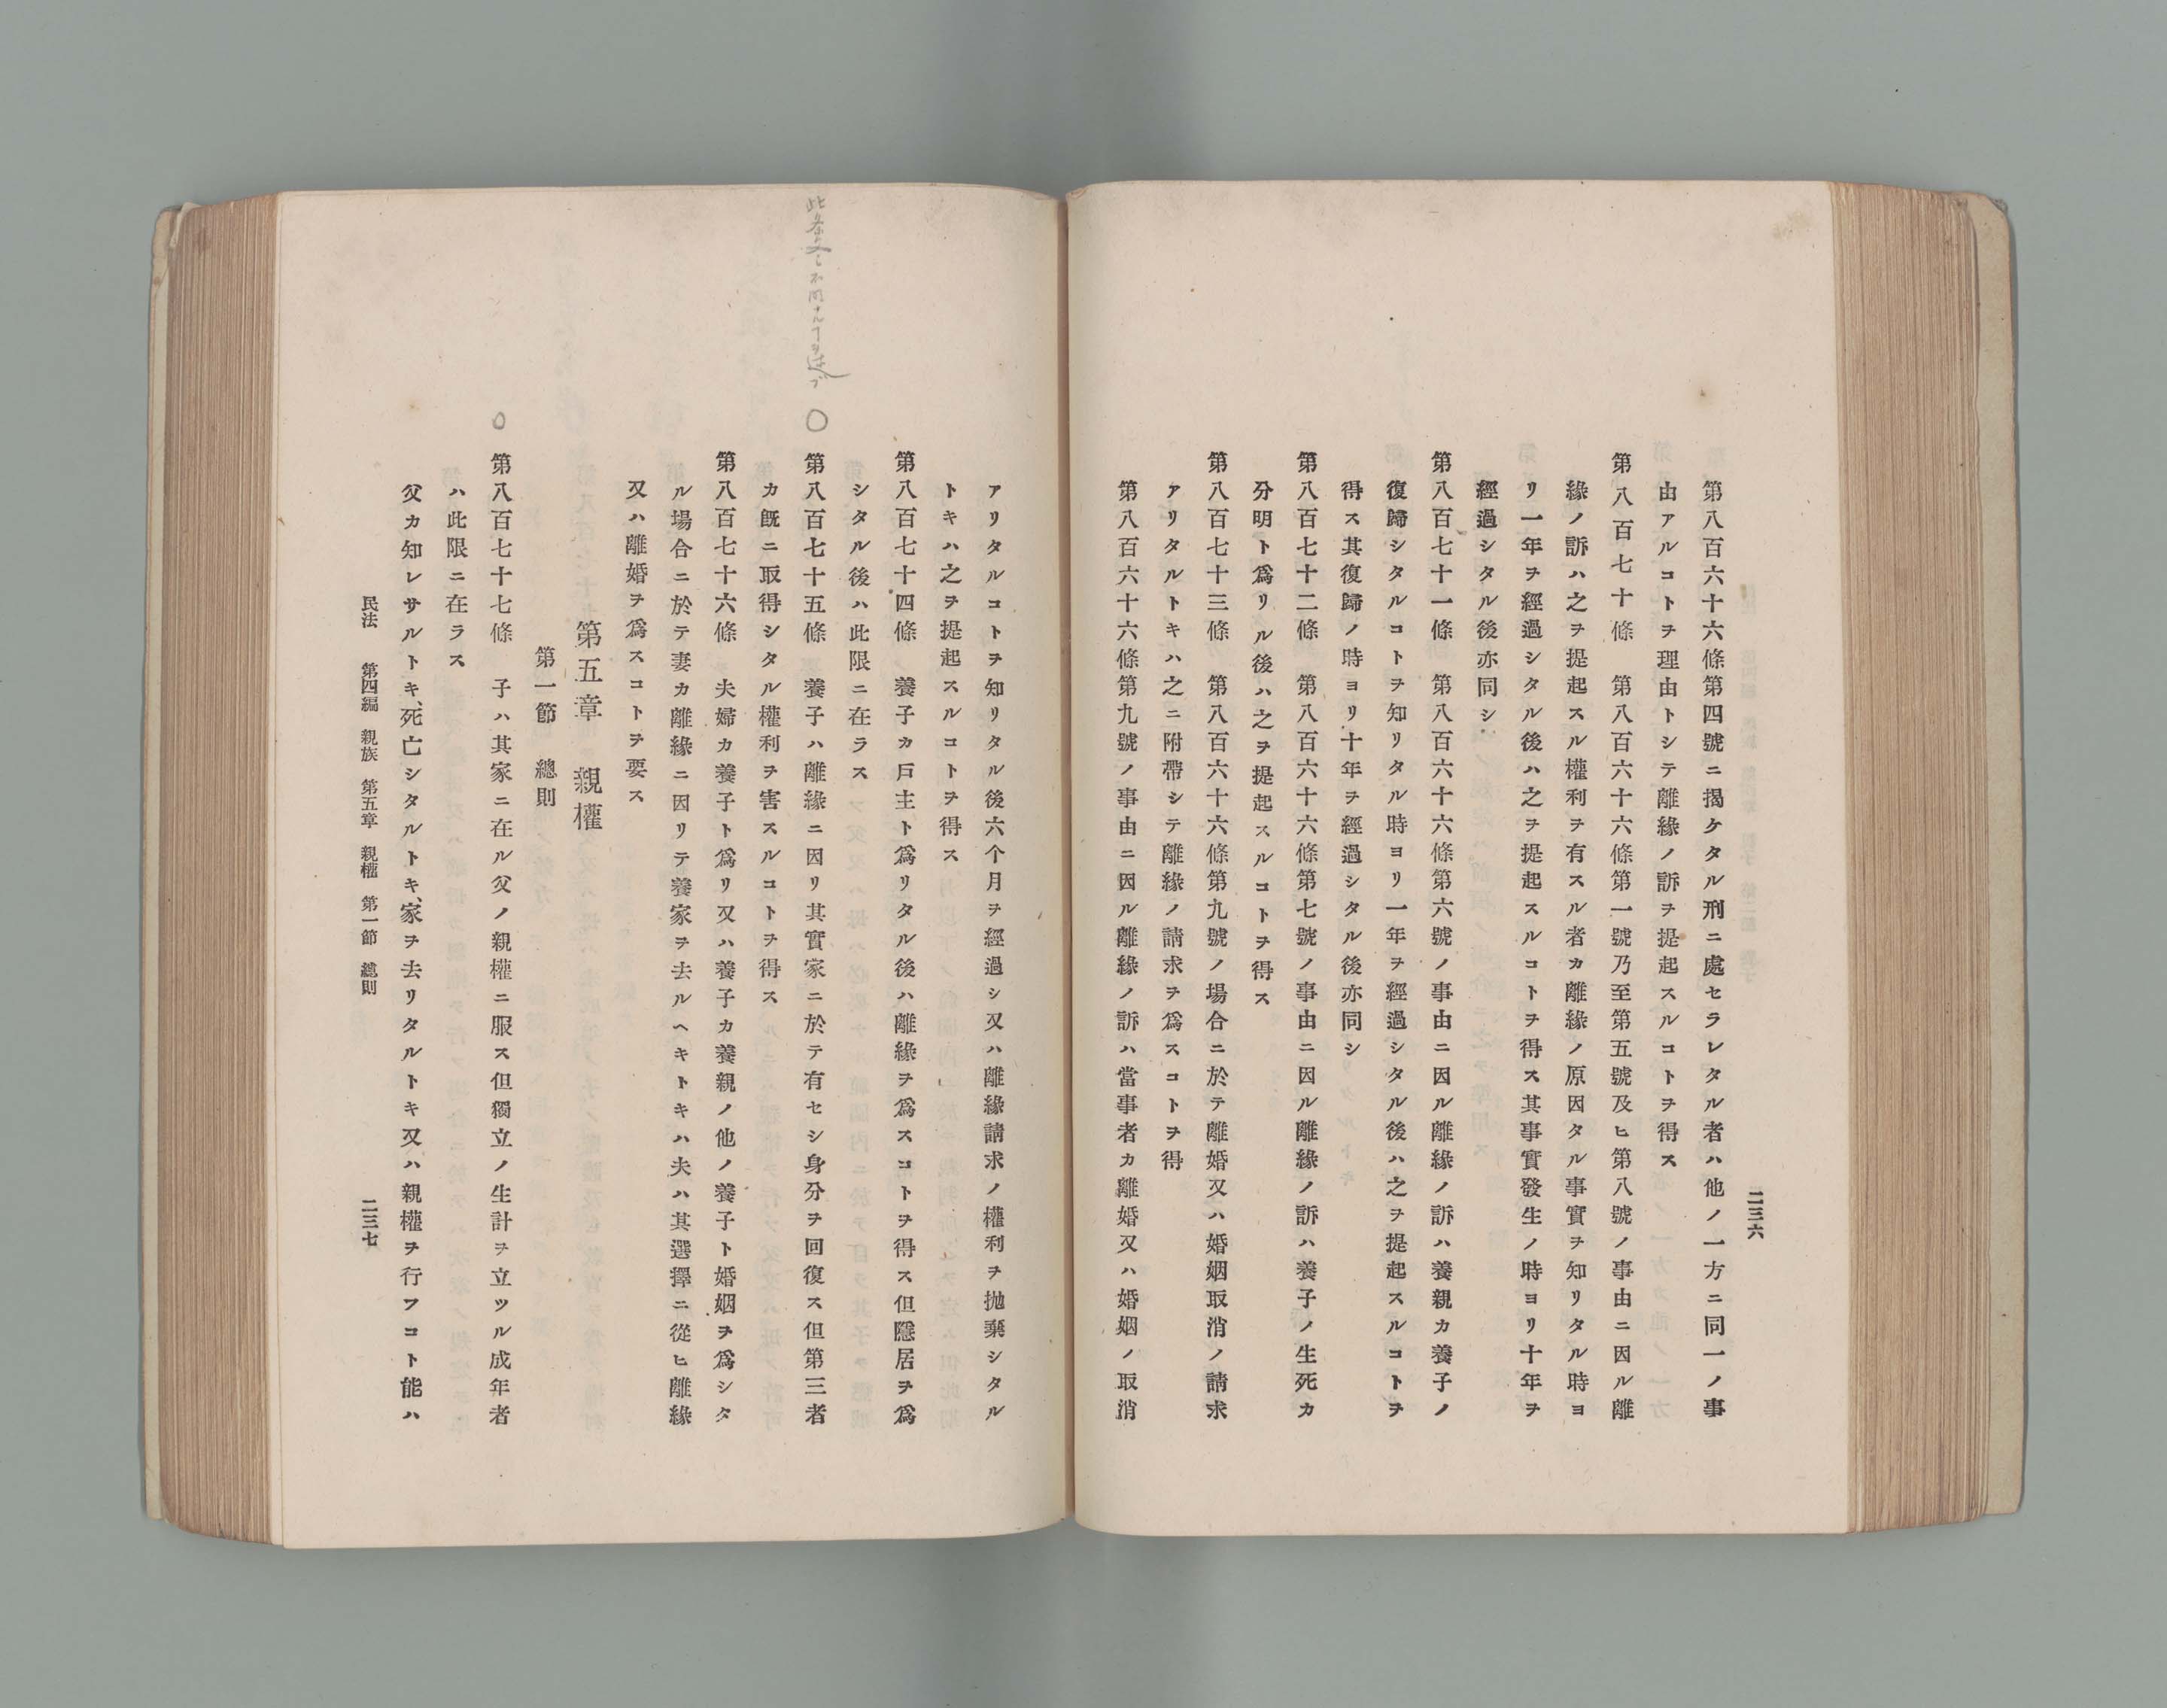 二三六
第八百六十六條第四號ニ揭ケタル刑ニ處セラレタル者ハ他ノ一方ニ同一ノ事
由アルコトヲ理由トシテ離緣ノ訴ヲ提起スルコトヲ得ス
第八百七十條　第八百六十六條第一號乃至第五號及ヒ第八號ノ事由ニ因ル離
緣ノ訴ハ之ヲ提起スル權利ヲ有スル者カ離緣ノ原因タル事實ヲ知リタル時ヨ
リ一年ヲ經過シタル後ハ之ヲ提起スルコトヲ得ス其事實發生ノ時ヨリ十年ヲ
經過シタル後亦同シ
第八百七十一條　第八百六十六條第六號ノ事由ニ因ル離緣ノ訴ハ養親カ養子ノ
復歸シタルコトヲ知リタル時ヨリ一年ヲ經過シタル後ハ之ヲ提起スルコトヲ
得ス其復歸ノ時ヨリ十年ヲ經過シタル後亦同シ
第八百七十二條　第八百六十六條第七號ノ事由ニ因ル離緣ノ訴ハ養子ノ生死カ
分明ト爲リル後ハ之ヲ提起スルコトヲ得ス
第八百七十三條　第八百六十六條第九號ノ場合ニ於テ離婚又ハ婚姻取消ノ請求
アリタルトキハ之ニ附帶シテ離緣ノ請求ヲ爲スコトヲ得
第八百六十六條第九號ノ事由ニ因ル離緣ノ訴ハ當事者カ離婚又ハ婚姻ノ取消
アリタルコトヲ知リタル後六个月ヲ經過シ又ハ離緣請求ノ權利ヲ抛棄シタル
トキハ之ヲ提起スルコトヲ得ス
第八百七十四條　養子カ戶主ト爲リタル後ハ離緣ヲ爲スコトヲ得ス但隱居ヲ爲
シタル後ハ此限ニ在ラス
此条
〇
第八百七十五條　養子ハ離緣ニ因リ其實家ニ於テ有セシ身分ヲ回復ス但第三者
カ既ニ取得シタル權利ヲ害スルコトヲ得ス
第八百七十六條　夫婦カ養子ト爲リ又ハ養子カ養親ノ他ノ養子ト婚姻ヲ爲シタ
ル場合ニ於テ妻カ離緣ニ因リテ養家ヲ去ルヘキトキハ夫ハ其選擇ニ從ヒ離緣
又ハ離婚ヲ爲スコトヲ要ス
第五章　親權
第一節　總則
〇
第八百七十七條　子ハ其家ニ在ル父ノ親權ニ服ス但獨立ノ生計ヲ立ツル成年者
ハ此限ニ在ラス
父カ知レサルトキ、死亡シタルトキ、家ヲ去リタルトキ又ハ親權ヲ行フコト能ハ
民法　第四編　親族　第五章　親權　第一節　總則
二三七